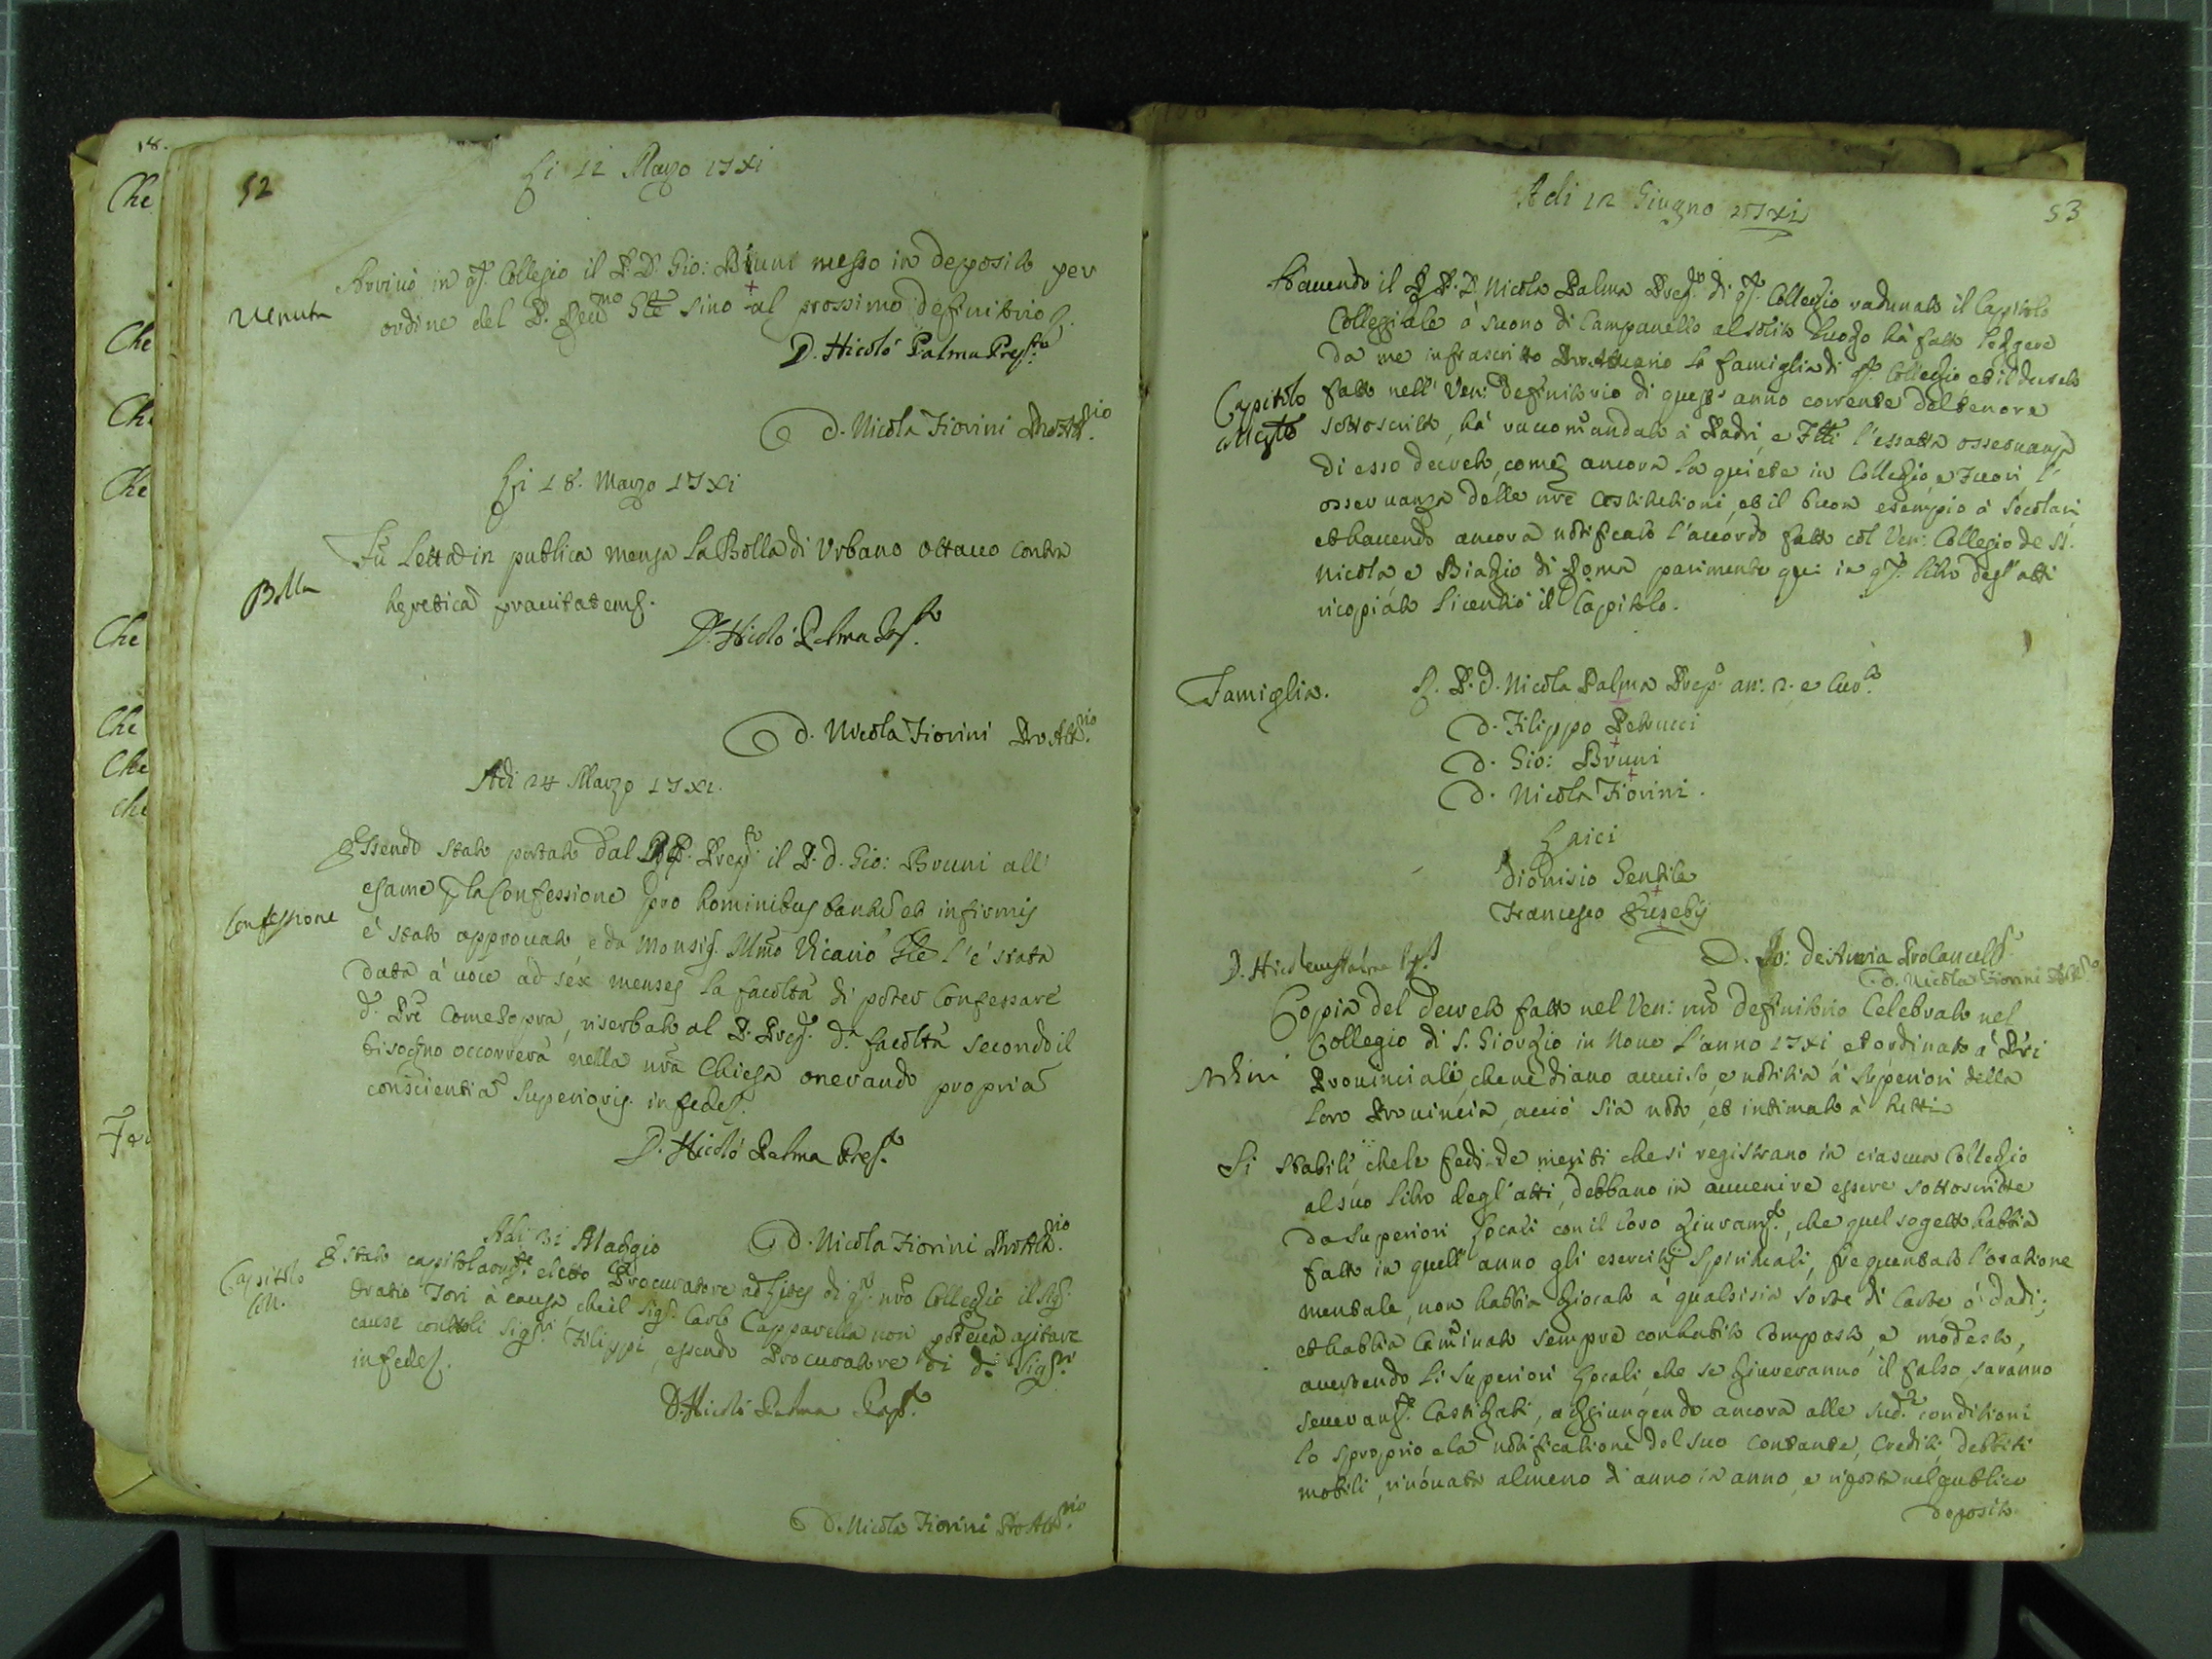 52
Li 12 Marzo 17xi
Venuta
Arrivò in qto. Collegio il P. D. Gio: Bruni messo in deposito per
ordine del P. Revmo Gle sino al prossimo definitorio
D. Nicolò Palma Prepto.
D. Nicola Fiorini ProAttrio.
Li 18. Marzo 17xi
Bolla
Fù Letta in publica mensa La Bolla di Urbano ottauo contra
hereticā prauitatem.
D. Nicolò Palma Prepto.
D. Nicola Fiorini ProAttrio.
Adi 24 Marzo 17xi.
Confessione
Essendo stato portato dal P. Prepto. il P. D. Gio: Bruni all'
esame p la Confessione pro hominibus tantū et infirmis
è stato approuato e da Monsig. Illmo Vicario Gle l'è stata
data à uoce ad sex menses la facoltà di poter Confessare
do. Prē come sopra, riserbato al P. Prepto. da. facoltà secondo il
bisogno occorrerà nella nrā Chiesa onerando propriā
conscientiā Superioris. in fede
D. Nicolò Palma Prepto.
D. Nicola Fiorini ProAttrio.
Adi 31 Maggio
Capitolo
Coll.
È stato capitolarmte. eletto Procuratore ad Lites di qto. nrō Collegio il Sigr.
Oratio Tori à causa, che il Sigr. Carlo Capparella non poteua agitare
cause contro li Sigri. Filippi, essendo Procuratore di di. Sigri.
in fede
D. Nicolò Palma Prepto.
D. Nicola Fiorini ProAttrio.
53
Adi 12 Giugno 17xi
Hauendo il P. D. Nicola Palma Prepto. di qto. Collegio radunato il Capitolo
Collegiale à suono di Campanello al solito luogo hà fatto leggere
da me infrascritto ProAttuario la famiglia di qto. Collegio et il decreto
Capitolo
fatto nell' Ven: Definitorio di quest' anno corrente del tenore
sottoscritto, hà raccomandato à Padri, e Flli l'essatta osseruanza
di esso decreto, come ancora la quiete in Collegio, e fuori, l'
osseruanza delle nrē Costitutioni, et il buon esempio à Secolari
et hauendo ancora notificato l'accordo fatto col Ven: Collegio de SS.
Nicola e Biagio di Roma parimente qui in qto. libro degl'atti
ricopiato licentiò il Capitolo.
Famiglia.
P. D. Nicola Palma Prepo. an: 2. e Curto.
D. Filippo Petrucci
D. Gio: Bruni
D. Nicola Fiorini.
Laici
Dionisio Gentile
Francesco Eusebij
D. Io: de Auria ProCancello
D. Nicola Fiorini
Copia del decreto fatto nel Ven: nrō Definitorio Celebrato nel
Collegio di S. Giorgio in Noui l'anno 17xi et ordinato à Prī
Ordini
Prouinciali, che ne diano auuiso, e notitia à Superiori della
loro Prouincia, acciò sia noto, et intimato à tutti
Si stabilì che le fedi de meriti che si registrano in ciascun Collegio
al suo libro degl'atti, debbano in auuenire essere sottoscritte
da Superiori Locali con il loro giuramto., che quel sogetto habbia
fatto in quell'anno gli esercitij Spirituali, frequentato l'oratione
mentale, non habbia giocato à qualsisia sorte di Carte ò dadi;
et habbia Caminato sempre con habito composto, e modesto,
auertendo li Superiori Locali, che se giureranno il falso, saranno
seueramte. Castigati, aggiungendo ancora alle sude. conditioni
lo sproprio e la notificatione del suo contante, Crediti, debiti
mobili, rinouata almeno di anno in anno, e riposta nel publico
deposito